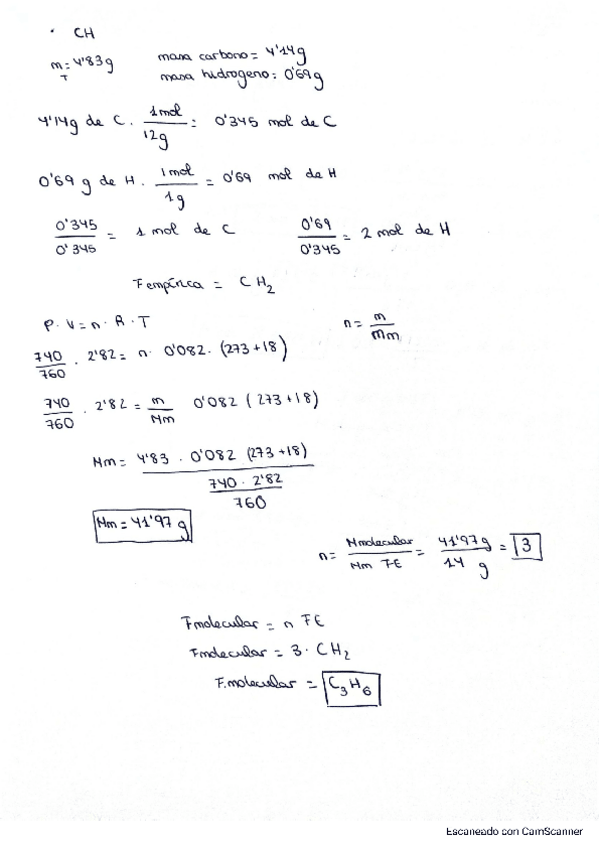 · CH
m_T = 4'83g masa carbono = 4'14g
masa hidrogeno: 0'69g
4'14g de C. 1mol/12g = 0'345 mol de C
0'69 g de H. 1mol/1g = 0'69 mol de H
0'345/0'345 = 1 mol de C 0'69/0'345 = 2 mol de H
F empírica = CH₂
P. V = n. R. T n = m/Mm
740/760 . 2'82 = n. 0'082. (273+18)
740/760 . 2'82 = m/Mm 0'082 (273+18)
Mm = 4'83 . 0'082 (273+18) / (740 . 2'82 / 760)
Mm = 41'97 g
n = Mmolecular/Mm FE = 41'97g/14 g = 3
Fmolecular = n FE
Fmolecular = 3. CH₂
F.molecular = C₃H₆
Escaneado con CamScanner